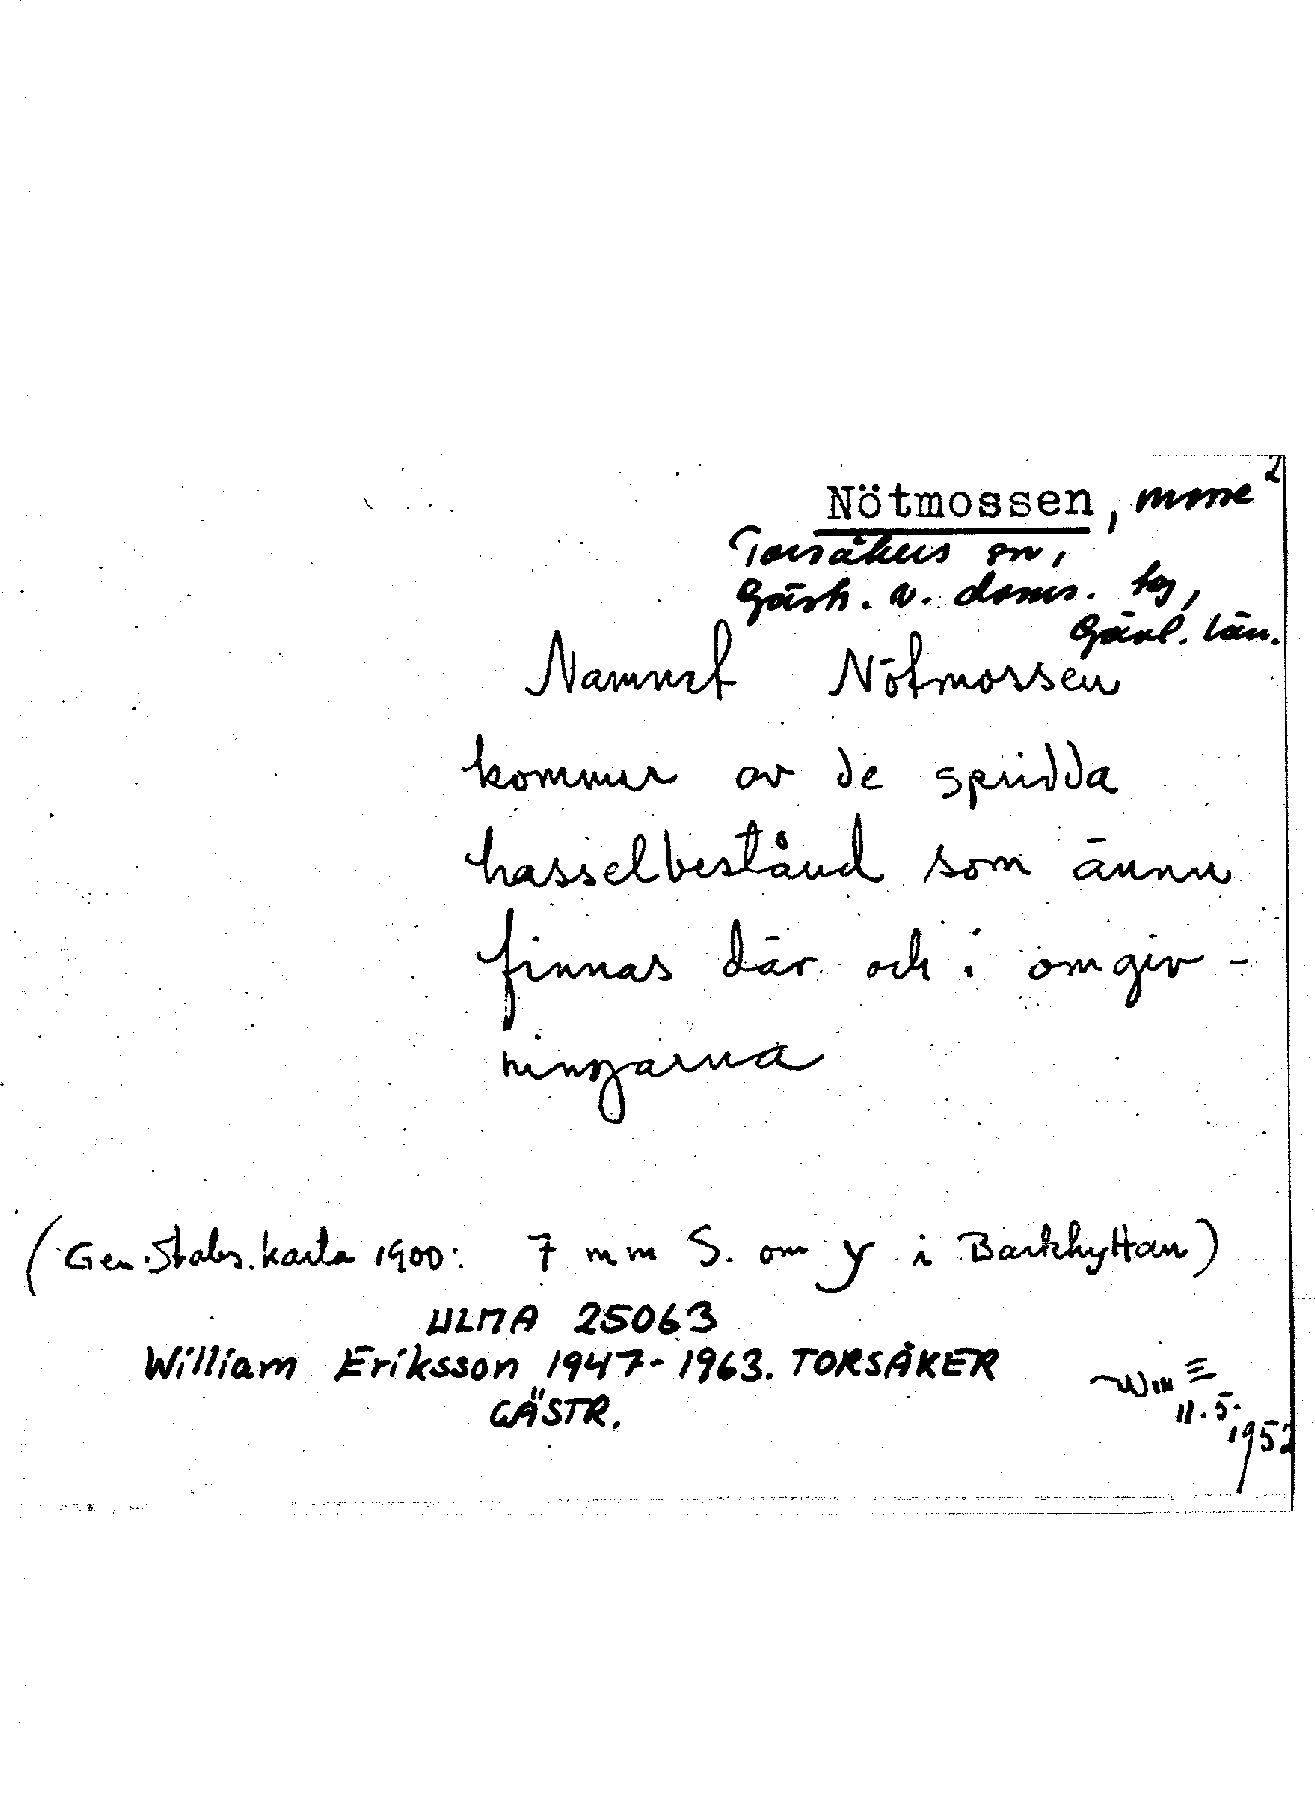 2
Nötmossen, mosse
Torsåkers sn,
Gästr. v. doms. tg,
Gävl. län.
Namnet Nötmossen
kommer av de spridda
hasselbestånd som ännu
finnas där och i omgiv-
ningarna
(Gen.Stabs.karta 1900: 7 mm S. om y i Barkhyttan)
ULMA 25063
William Eriksson 1947-1963. TORSÅKER
GÄSTR.
Wm E
11.5.
1952